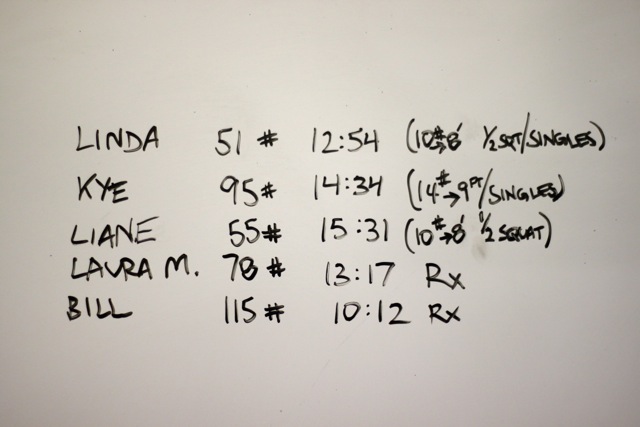 LINDA 51 # 12:54 (10#→8' 1/2 SQT/SINGLES)
KYE 95# 14:34 (14#→9FT/SINGLES)
LIANE 55# 15:31 (10#→8' 1/2 SQUAT)
LAURA M. 78 # 13:17 Rx
BILL 115 # 10:12 Rx